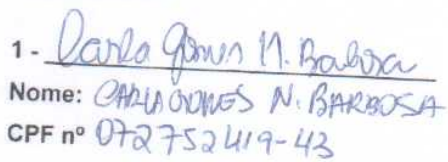 1 - Carla Gomes N. Barbosa
Nome: CARLA GOMES N. BARBOSA
CPF nº 072752419-43